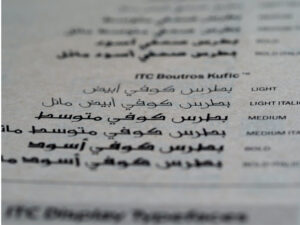 بطرس صحفي أسود
بطرس صحفي أسود مائل
ITC Boutros Kufic™
بطرس كوفي أبيض LIGHT
بطرس كوفي أبيض مائل LIGHT ITALIC
بطرس كوفي متوسط MEDIUM
بطرس كوفي متوسط مائل MEDIUM ITALIC
بطرس كوفي أسود BOLD
بطرس كوفي أسود مائل BOLD ITALIC
ITC Display Typefaces